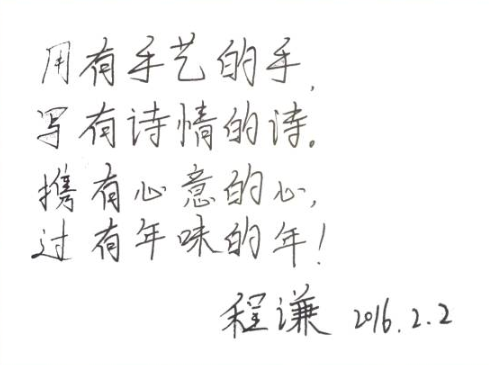 用有手艺的手,
写有诗情的诗。
携有心意的心,
过有年味的年!
程谦 2016.2.2